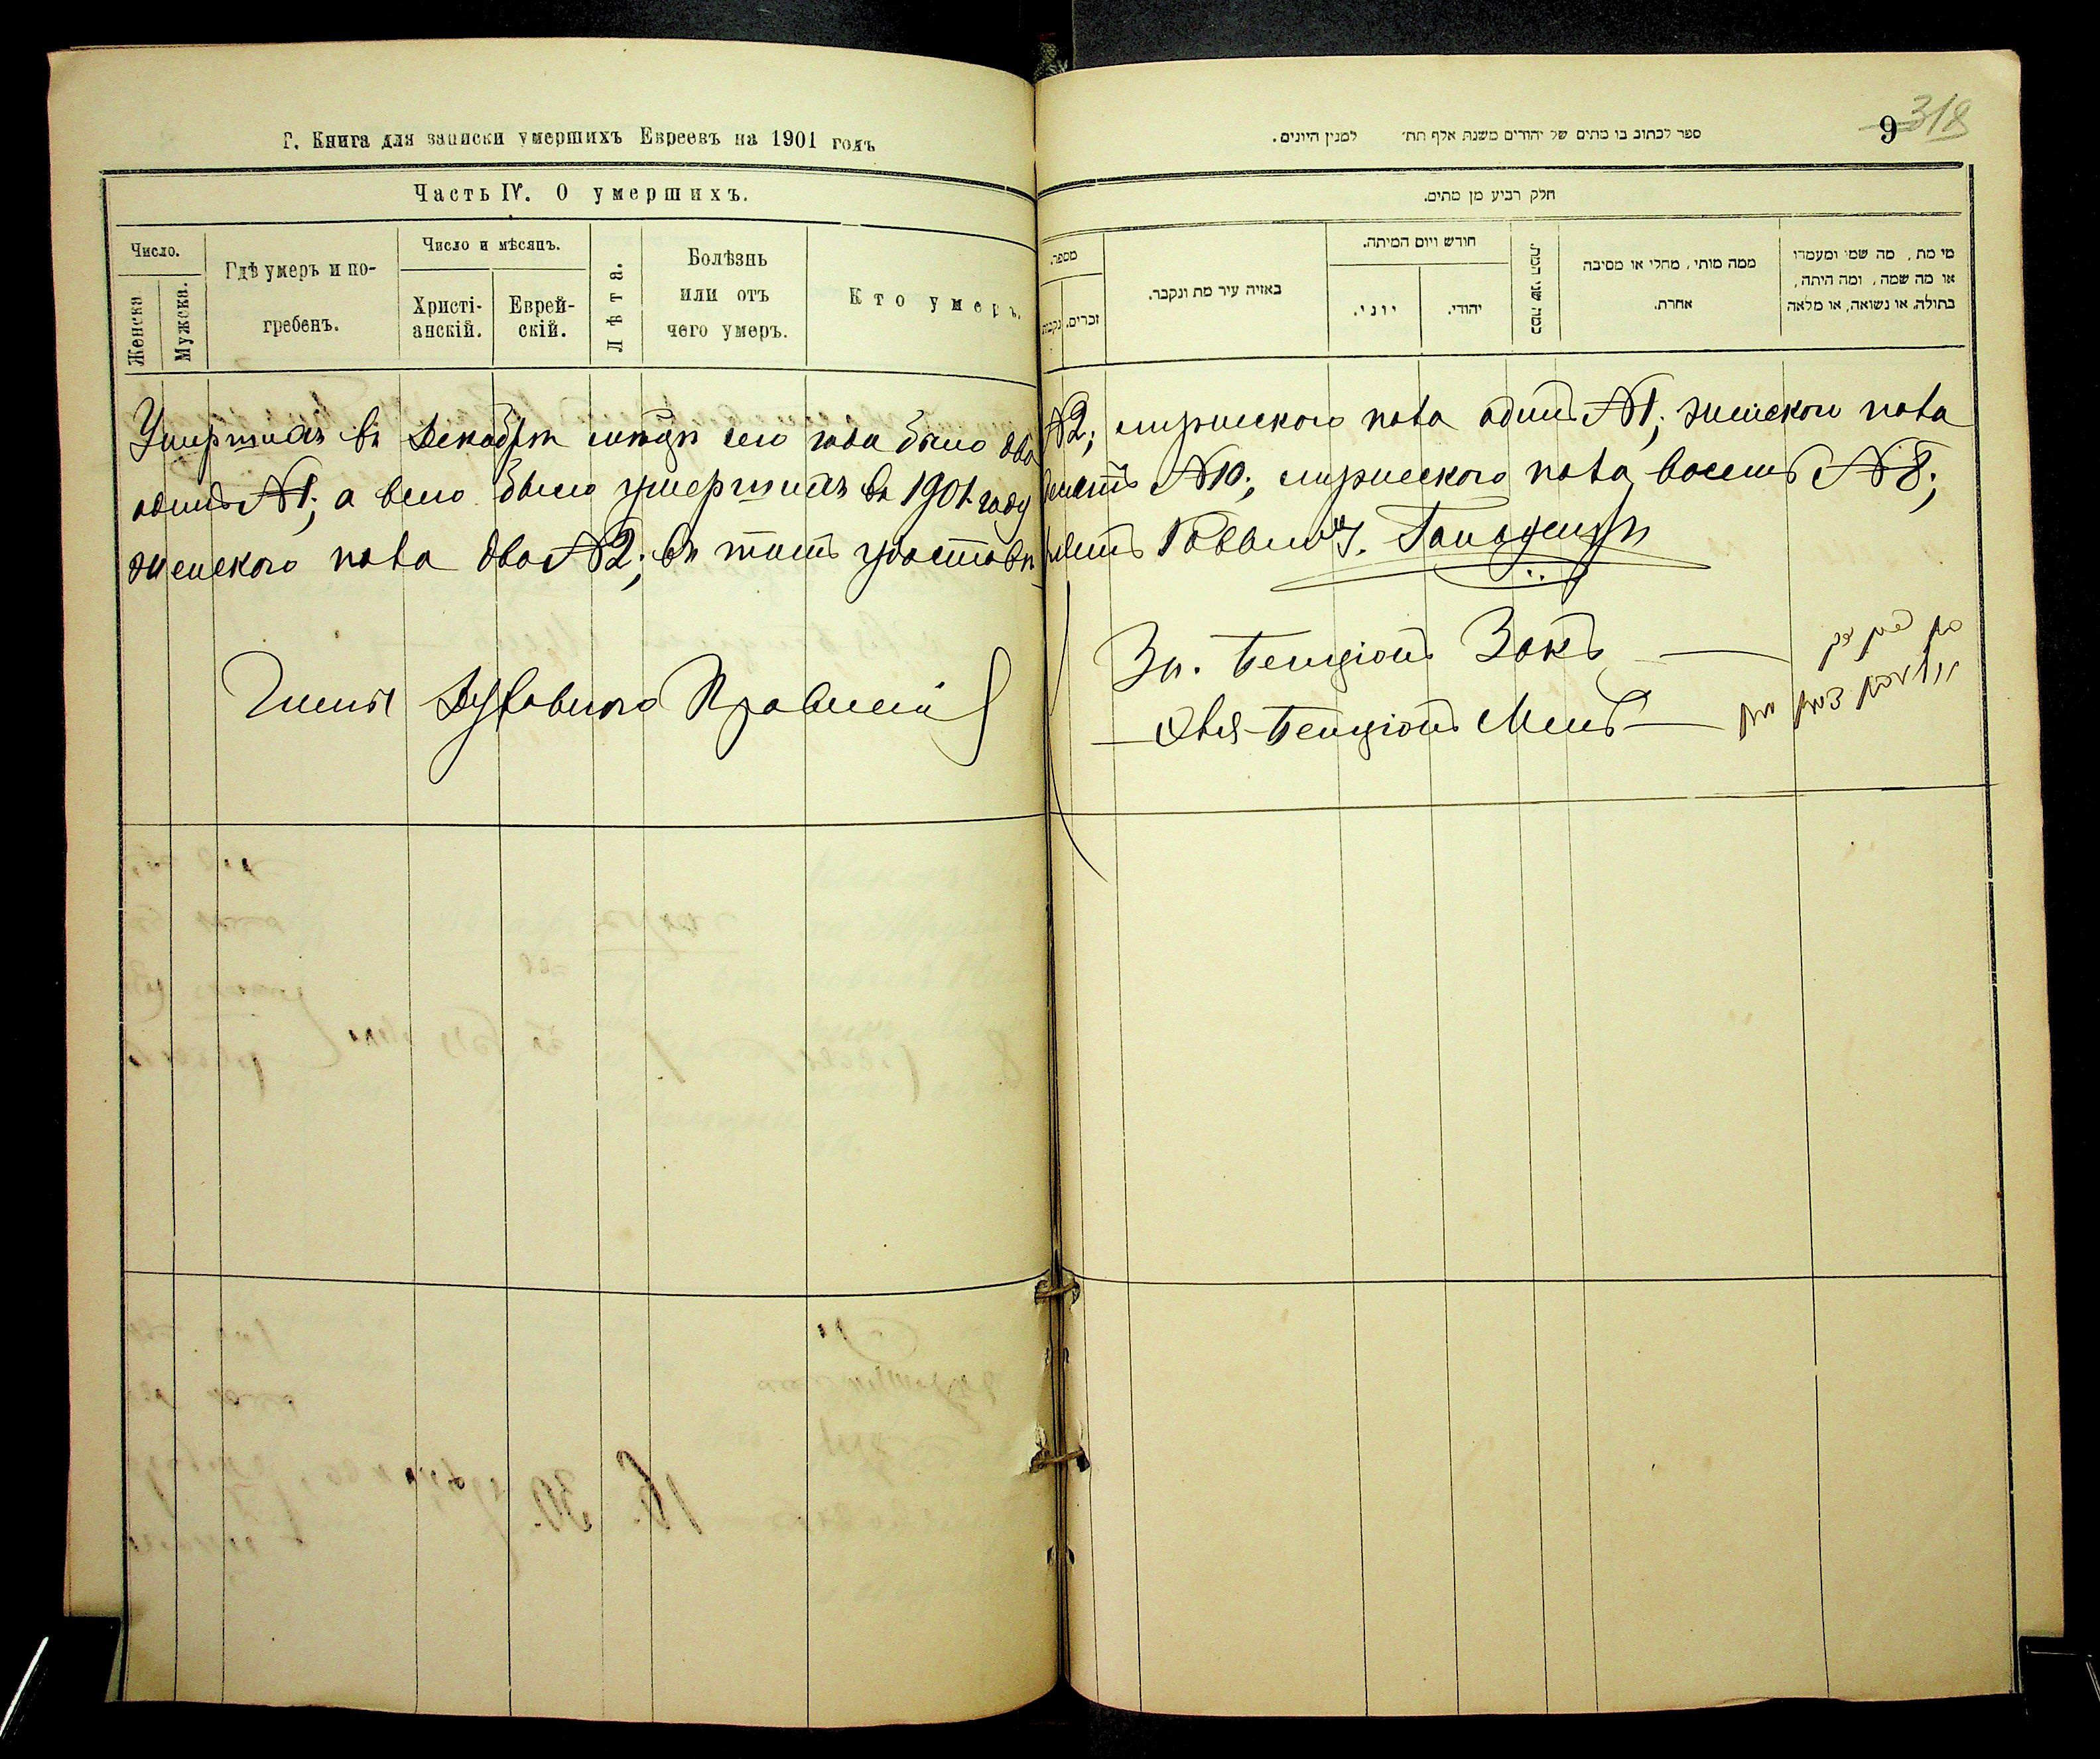 Г. Книга для записки умершихъ Евреевъ на 1901 годъ
Часть IV. О умершихъ.
Число.
Женска
Мужска.
Гдѣ умеръ и по-
гребенъ.
Число и мѣсяцъ.
Христі-
анскій.
Еврей-
скій.
Лѣта.
Болѣзнь
или отъ
чего умеръ.
Кто умеръ.
Умершихъ въ Декабрѣ мѣсяцѣ сего года было два
одинъ №1; а всего было умершихъ въ 1901 году
женскаго пола два №2; въ томъ удостовѣ
Члены Духовнаго Правленія
9 318
ספר לכתוב בו מתים של יהודים משנת אלף תת׳ למנין היונים.
חלק רביע מן מתים.
מספר.
נקבות
זכרים.
באזיה עיר מת ונקבר.
חודש ויום המיתה.
יוני.
יהודי.
כמה שני המת.
ממה מותי, מחלי או מסיבה
אחרת.
מי מת, מה שמו ומעמדו
או מה שמה, ומה היתה,
בתולה, או נשואה, או מלאה
№2; мужескаго пола одинъ №1; женскаго пола
десять №10; мужескаго пола восемь №8;
ряетъ Раввинъ
Зн. Бенціонъ Закъ
Овсѣй-Бенціонъ